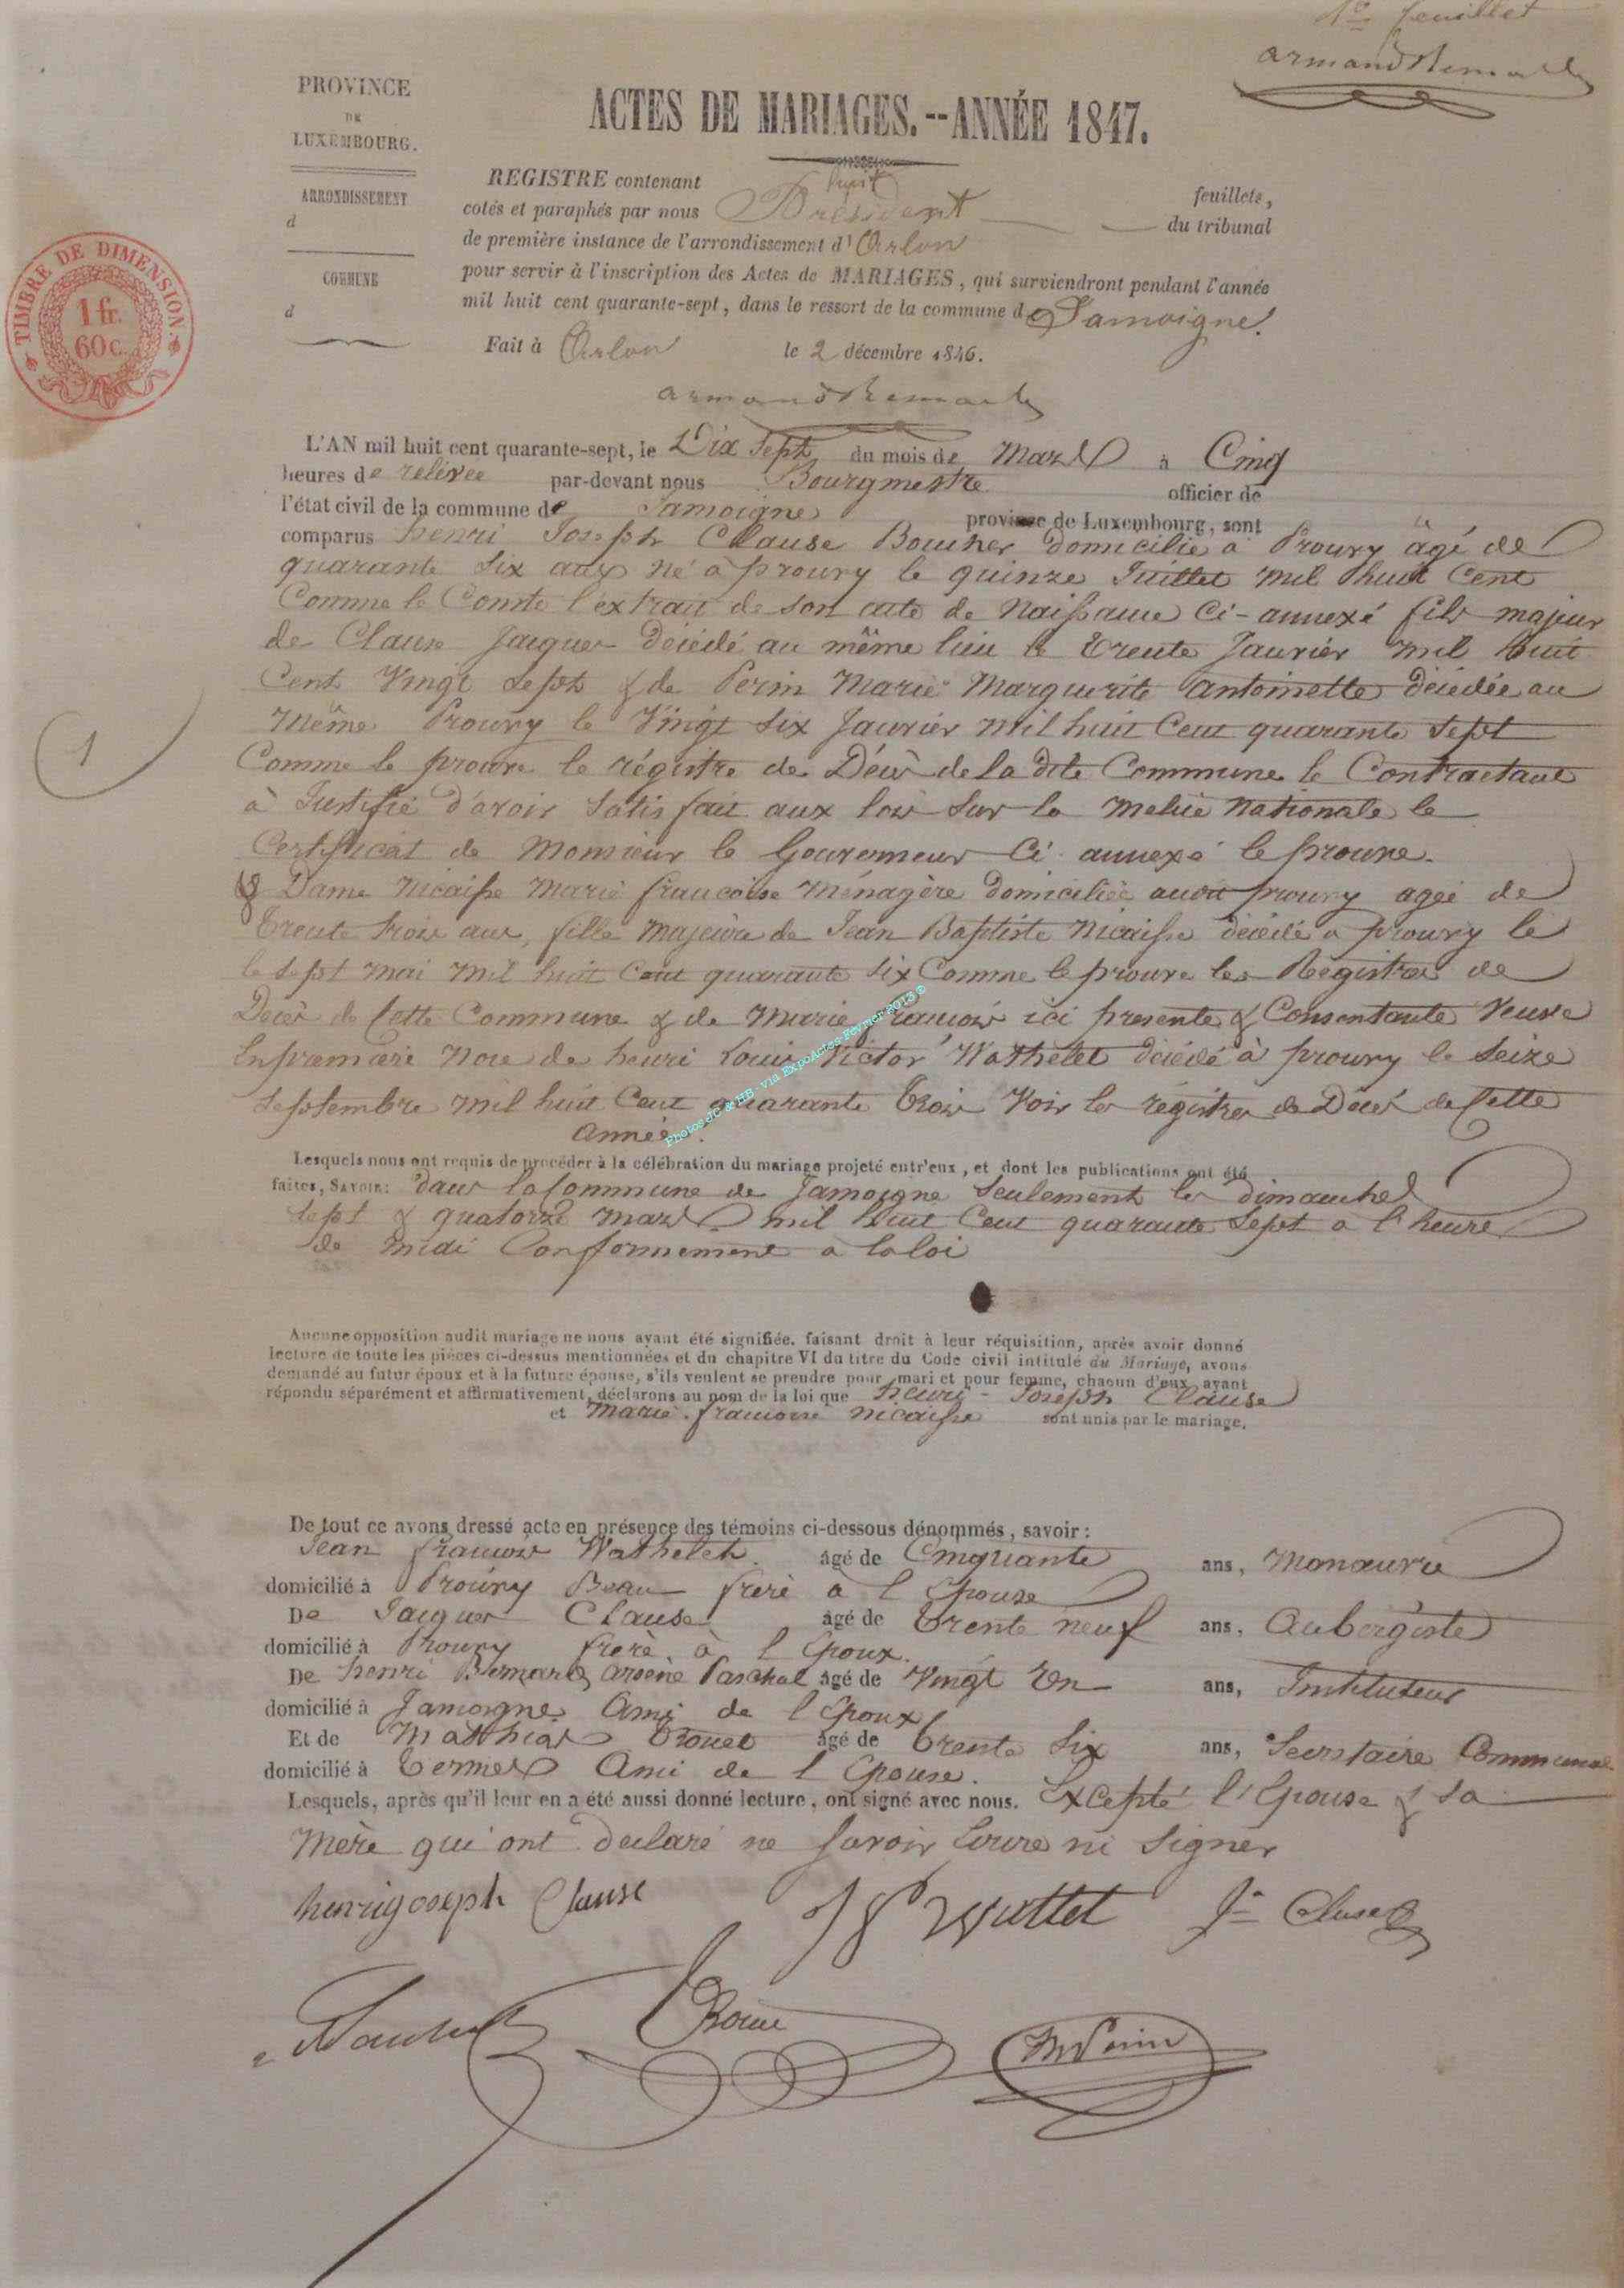 1er feuillet
armand Remacle
PROVINCE
DE
LUXEMBOURG.
ARRONDISSEMENT
d
COMMUNE
d
TIMBRE DE DIMENSION.
1 fr.
60 c.
ACTES DE MARIAGES.--ANNÉE 1847.
REGISTRE contenant huit feuillets,
cotés et paraphés par nous Président du tribunal
de première instance de l'arrondissement d'Arlon
pour servir à l'inscription des Actes de MARIAGES, qui surviendront pendant l'année
mil huit cent quarante-sept, dans le ressort de la commune de Jamoigne.
Fait à Arlon le 2 décembre 1846.
L'AN mil huit cent quarante-sept, le Dix Sept du mois de Mars à Cinq
heures de relevée par-devant nous Bourgmestre officier de
l'état civil de la commune de Jamoigne province de Luxembourg, sont
comparus henri Joseph Clause Boucher domicilié a Prouvy âgé de
quarante Six ans né a prouvy le quinze Juillet mil huit Cent
Comme le Conste l'extrait de son acte de Naissance Ci-annexé fils majeur
de Clause Jacques décédé au même lieu le trente Janvier mil huit
Cent Vingt Sept & de Perin Marie Marguerite antoinette décédée au
même Prouvy le Vingt Six Janvier mil huit Cent quarante Sept
Comme le prouve le régistre de Décès de la dite Commune le Contractant
à Justifié d'avoir Satisfait aux lois Sur la melice Nationale le
Certificat de Monsieur le Gouverneur Ci annexé le prouve.
& Dame Nicaisse Marie francoise Ménagère domiciliée audit prouvy agée de
trente trois ans, fille majeure de Jean Baptiste Nicaisse décédé a prouvy le
le Sept mai mil huit Cent quarante Six Comme le prouve les Régistres de
Décès de Cette Commune & de Marie francois ici presente & Consentante Veuve
En premiere Noce de henri Louis Victor Wathelet décédé à prouvy le Seize
Septembre mil huit Cent quarante trois Voir les régistres de Décès de Cette
année.
Photos JC & HB - via ExpoActes Février 2013 ©
1
Lesquels nous ont requis de procéder à la célébration du mariage projeté entr'eux, et dont les publications ont été
faites, SAVOIR: dans la Commune de Jamoigne Seulement les dimanches
Sept & quatorze mars mil huit Cent quarante Sept a l'heure
de midi Conformement a la loi
Aucune opposition audit mariage ne nous ayant été signifiée, faisant droit à leur réquisition, après avoir donné
lecture de toute les pièces ci-dessus mentionnées et du chapitre VI du titre du Code civil intitulé du Mariage, avons
demandé au futur époux et à la future épouse, s'ils veulent se prendre pour mari et pour femme, chacun d'eux ayant
répondu séparément et affirmativement, déclarons au nom de la loi que henri - Joseph Clause
et Marie. francoise nicaisse sont unis par le mariage.
De tout ce avons dressé acte en présence des témoins ci-dessous dénommés, savoir:
Jean francois Wathelet. âgé de Cinquante ans, Manœuvre
domicilié à Prouvy Beau frere a l Epouse
De Jacques Clause âgé de trente neuf ans, Aubergiste
domicilié à Prouvy frere à l Epoux.
De henri Bernard arsene Paschal âgé de Vingt Un ans, Instituteur
domicilié à Jamoigne Ami de l Epoux
Et de Matthias trouet âgé de trente Six ans, Secretaire Communal
domicilié à termes Ami de l Epouse.
Lesquels, après qu'il leur en a été aussi donné lecture, ont signé avec nous. Excepté l'Epouse & sa
Mère qui ont declaré ne Savoir Ecrire ni Signer
henrijoseph Clause